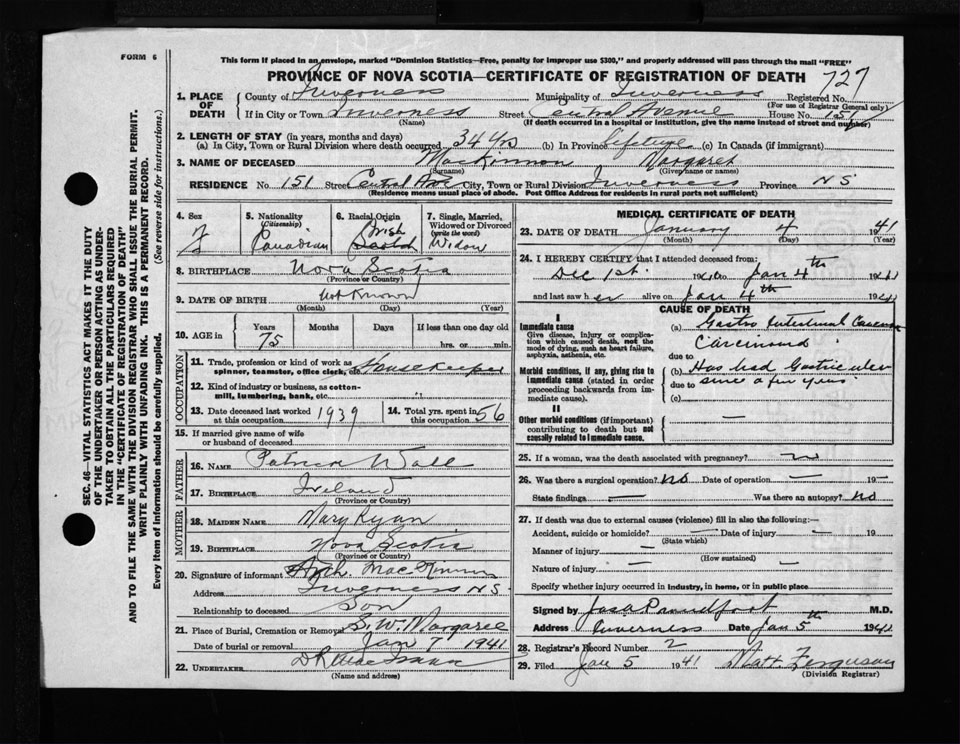 FORM 6
This form if placed in an envelope, marked "Dominion Statistics—Free, penalty for improper use $300," and properly addressed will pass through the mail "FREE"
PROVINCE OF NOVA SCOTIA—CERTIFICATE OF REGISTRATION OF DEATH 727
1. PLACE OF DEATH County of Inverness Municipality of Inverness Registered No.
(For use of Registrar General only)
If in City or Town Inverness Street Central Avenue House No. 151
(Name) (If death occurred in a hospital or institution, give the name instead of street and number)
2. LENGTH OF STAY (in years, months and days)
(a) In City, Town or Rural Division where death occurred 34 yrs (b) In Province Lifetime (c) In Canada (if immigrant)
3. NAME OF DECEASED MacKinnon Margaret
(Surname) (Given name or names)
RESIDENCE No. 151 Street Central Ave City, Town or Rural Division Inverness Province NS
(Residence means usual place of abode. Post Office Address for residents in rural parts not sufficient)
4. Sex 5. Nationality (Citizenship) 6. Racial Origin 7. Single, Married, Widowed or Divorced (write the word)
F Canadian Irish Scotch Widow
8. BIRTHPLACE Nova Scotia
(Province or Country)
9. DATE OF BIRTH Not Known
(Month) (Day) (Year)
10. AGE in Years Months Days If less than one day old
75 hrs. or min.
OCCUPATION
11. Trade, profession or kind of work as spinner, teamster, office clerk, etc. Housekeeper
12. Kind of industry or business, as cotton-mill, lumbering, bank, etc. "
13. Date deceased last worked at this occupation 1939 14. Total yrs. spent in this occupation 56
15. If married give name of wife or husband of deceased
FATHER
16. NAME Patrick Wall
17. BIRTHPLACE Ireland
(Province or Country)
MOTHER
18. MAIDEN NAME Mary Ryan
19. BIRTHPLACE Nova Scotia
(Province or Country)
20. Signature of informant Arch. MacKinnon
Address Inverness NS
Relationship to deceased Son
21. Place of Burial, Cremation or Removal S.W. Margaree
Date of burial or removal Jan 7 1941
22. UNDERTAKER D R MacIsaac
(Name and address)
MEDICAL CERTIFICATE OF DEATH
23. DATE OF DEATH January 4 1941
(Month) (Day) (Year)
24. I HEREBY CERTIFY that I attended deceased from:
Dec 1st. 1940 to Jan 4th 1941
and last saw her alive on Jan 4th 1941
CAUSE OF DEATH
I
Immediate cause
Give disease, injury or complication which caused death, not the mode of dying, such as heart failure, asphyxia, asthenia, etc.
(a) Gastro Intestinal
Carcinoma
due to
Morbid conditions, if any, giving rise to immediate cause (stated in order proceeding backwards from immediate cause).
(b) Has had Gastric ulcer
due to since a few years.
(c)
II
Other morbid conditions (if important) contributing to death but not causally related to immediate cause. —
25. If a woman, was the death associated with pregnancy? no
26. Was there a surgical operation? no Date of operation — 19—
State findings — Was there an autopsy? no
27. If death was due to external causes (violence) fill in also the following:—
Accident, suicide or homicide? — Date of injury — 19
(State which)
Manner of injury —
(How sustained)
Nature of injury —
Specify whether injury occurred in industry, in home, or in public place
Signed by Jas A Proudfoot M.D.
Address Inverness Date Jan 5th 1941
28. Registrar's Record Number 2
29. Filed Jan 5 1941 Matt Ferguson
(Division Registrar)
SEC. 46—VITAL STATISTICS ACT MAKES IT THE DUTY
OF THE UNDERTAKER OR PERSON ACTING AS UNDER-
TAKER TO OBTAIN ALL THE PARTICULARS REQUIRED
IN THE "CERTIFICATE OF REGISTRATION OF DEATH"
AND TO FILE THE SAME WITH THE DIVISION REGISTRAR WHO SHALL ISSUE THE BURIAL PERMIT.
WRITE PLAINLY WITH UNFADING INK. THIS IS A PERMANENT RECORD.
Every item of information should be carefully supplied. (See reverse side for instructions.)